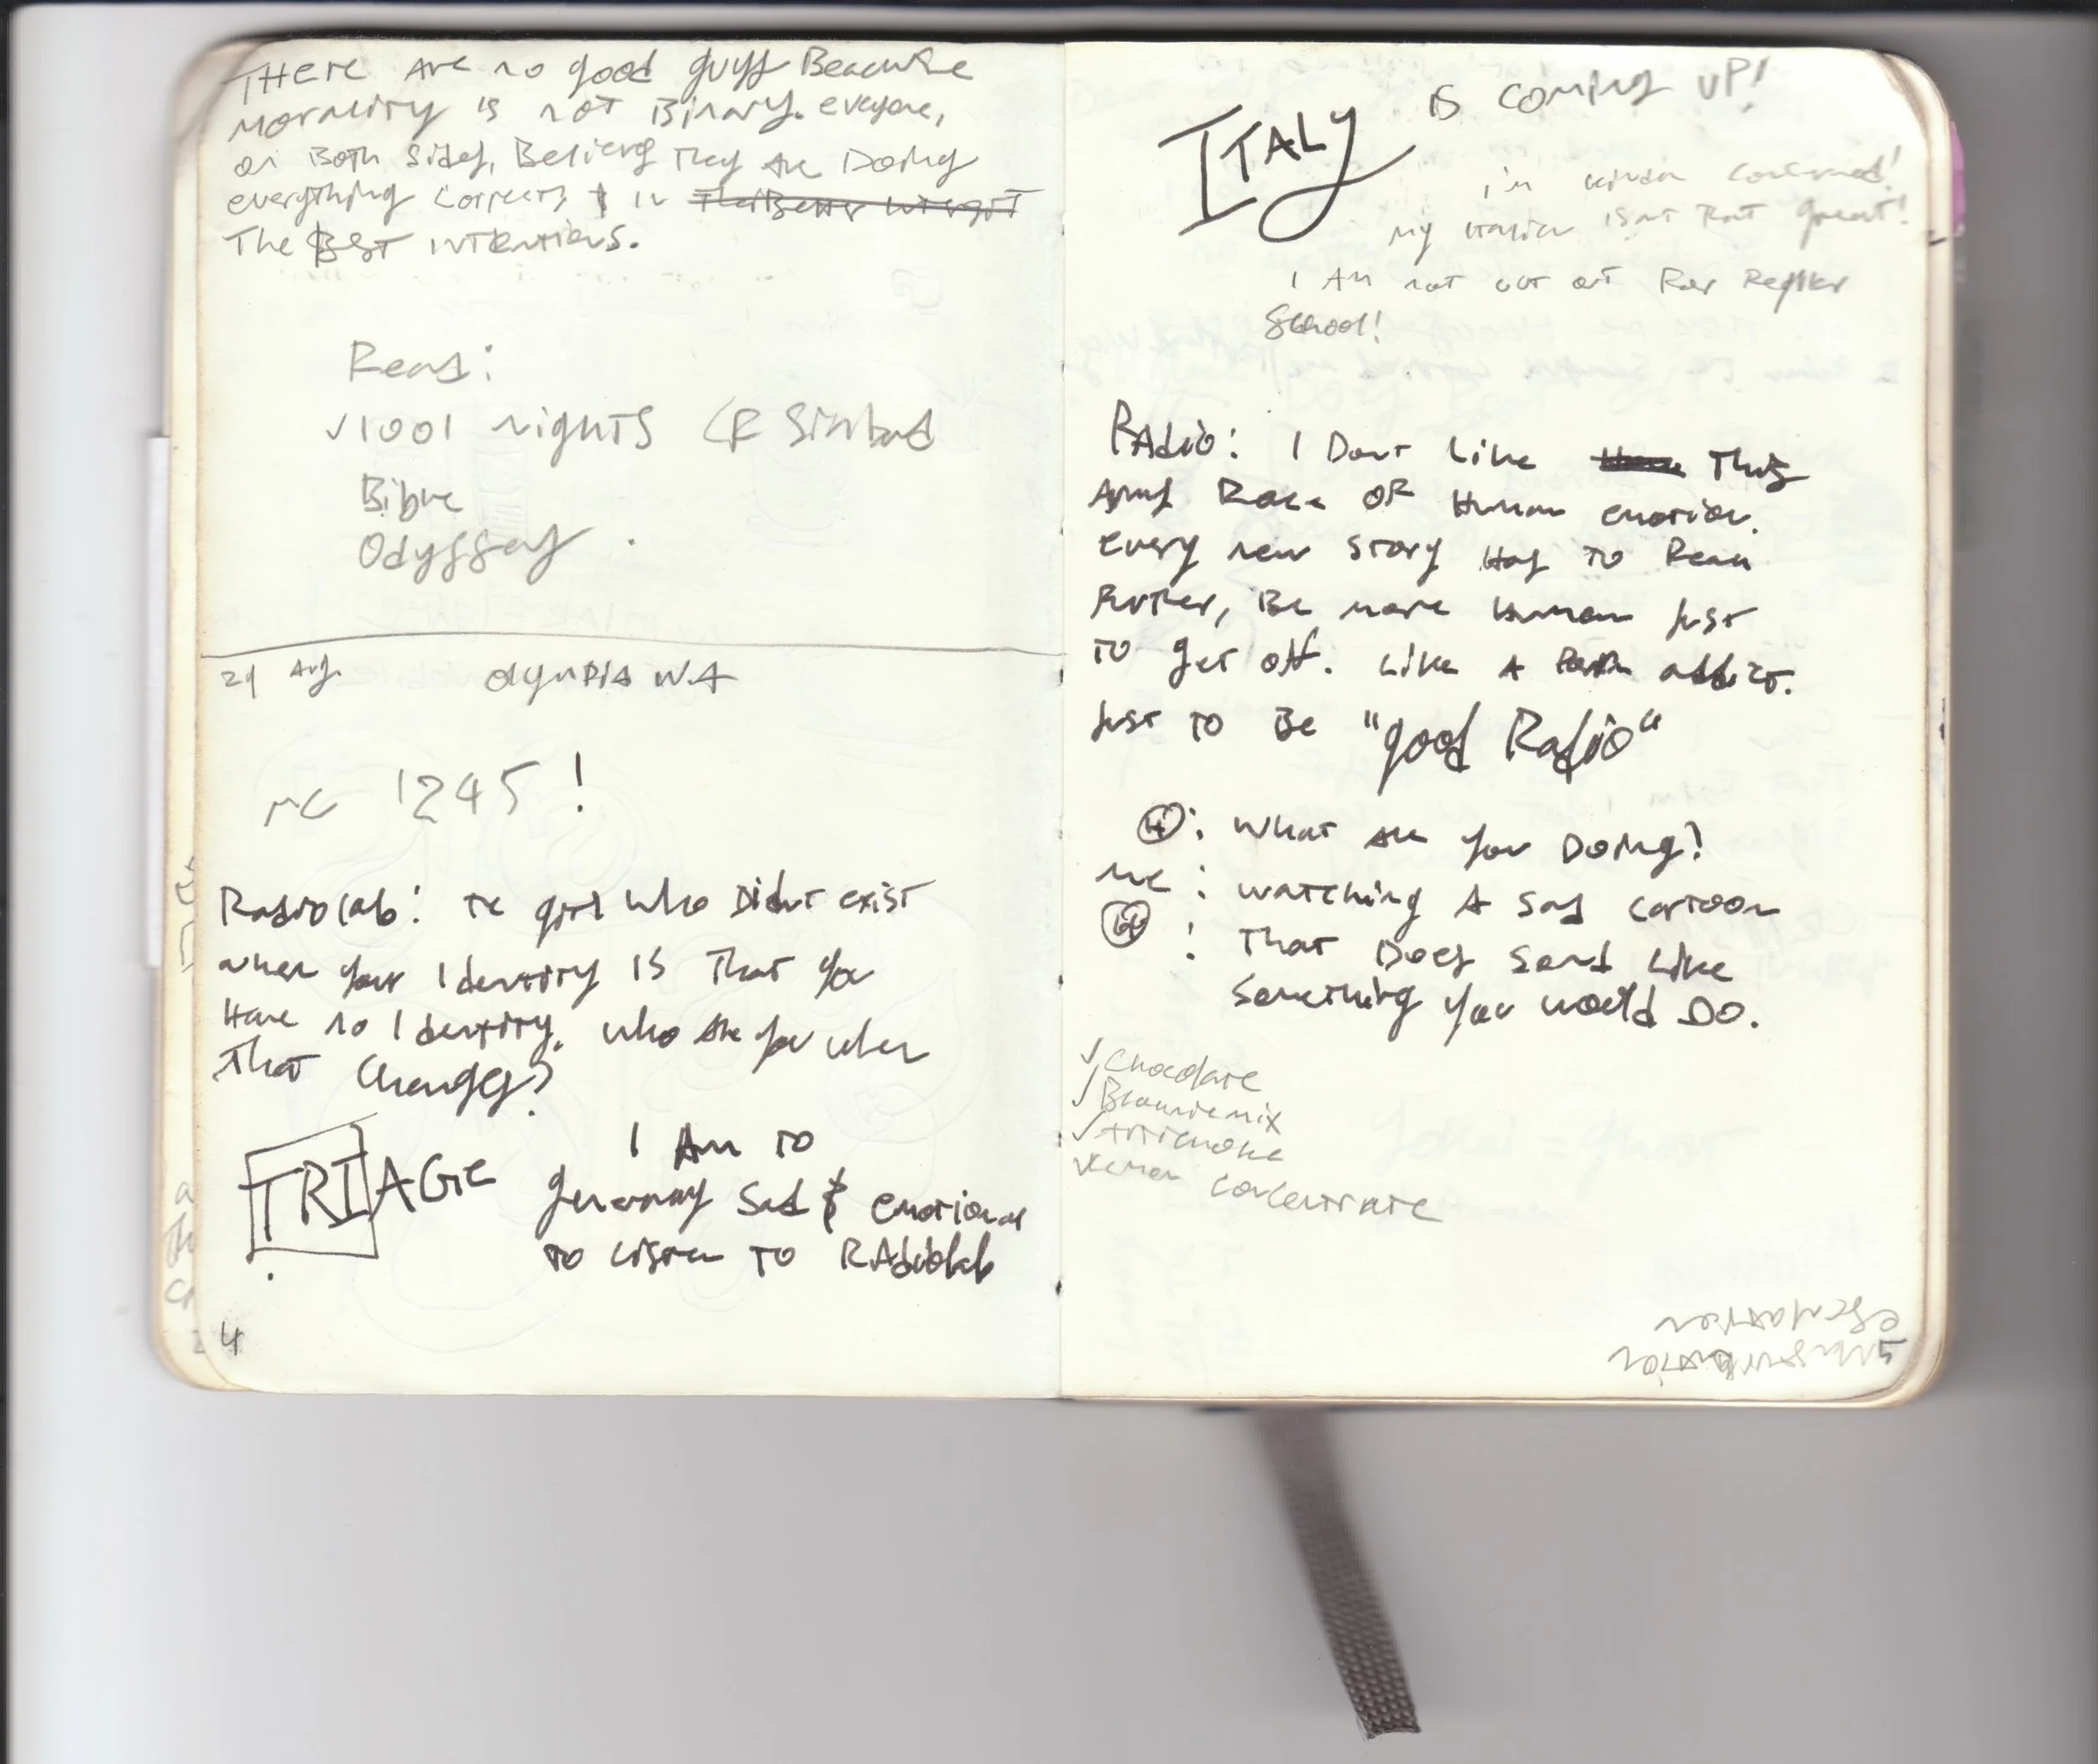 THERE ARE no good guys Beacuse
morality is not Binary. everyone,
on Both sides, Believes They are Doing
everything correctly & in
The BEST INTENTIONS.
Read:
✓1001 nights Sinbad
Bible
Odyssey
29 Aug. Olympia WA
1245!
Radiolab: The girl who Didnt exist
when your Identity is That you
Have no Identity, who are you when
That Changes?
TRIAGE
I Am TO
Sad & emotional
TO Listen TO RAdiolab
4
ITALY is coming UP!
i'm kinda concerned!
my italian isnt that great!
I Am not cut out for
School!
RAdio: I Dont Like This
Arms Race OF Human emotion.
every new story Has TO Reach
Further, Be more Human Just
TO get off. Like A Porn addict.
Just TO Be "good Radio"
: What are you Doing?
me: watching A sad cartoon
: That Does sound Like
something you would DO.
✓chocolate
✓Brownie mix
✓artichoke
✓Lemon concentrate
5